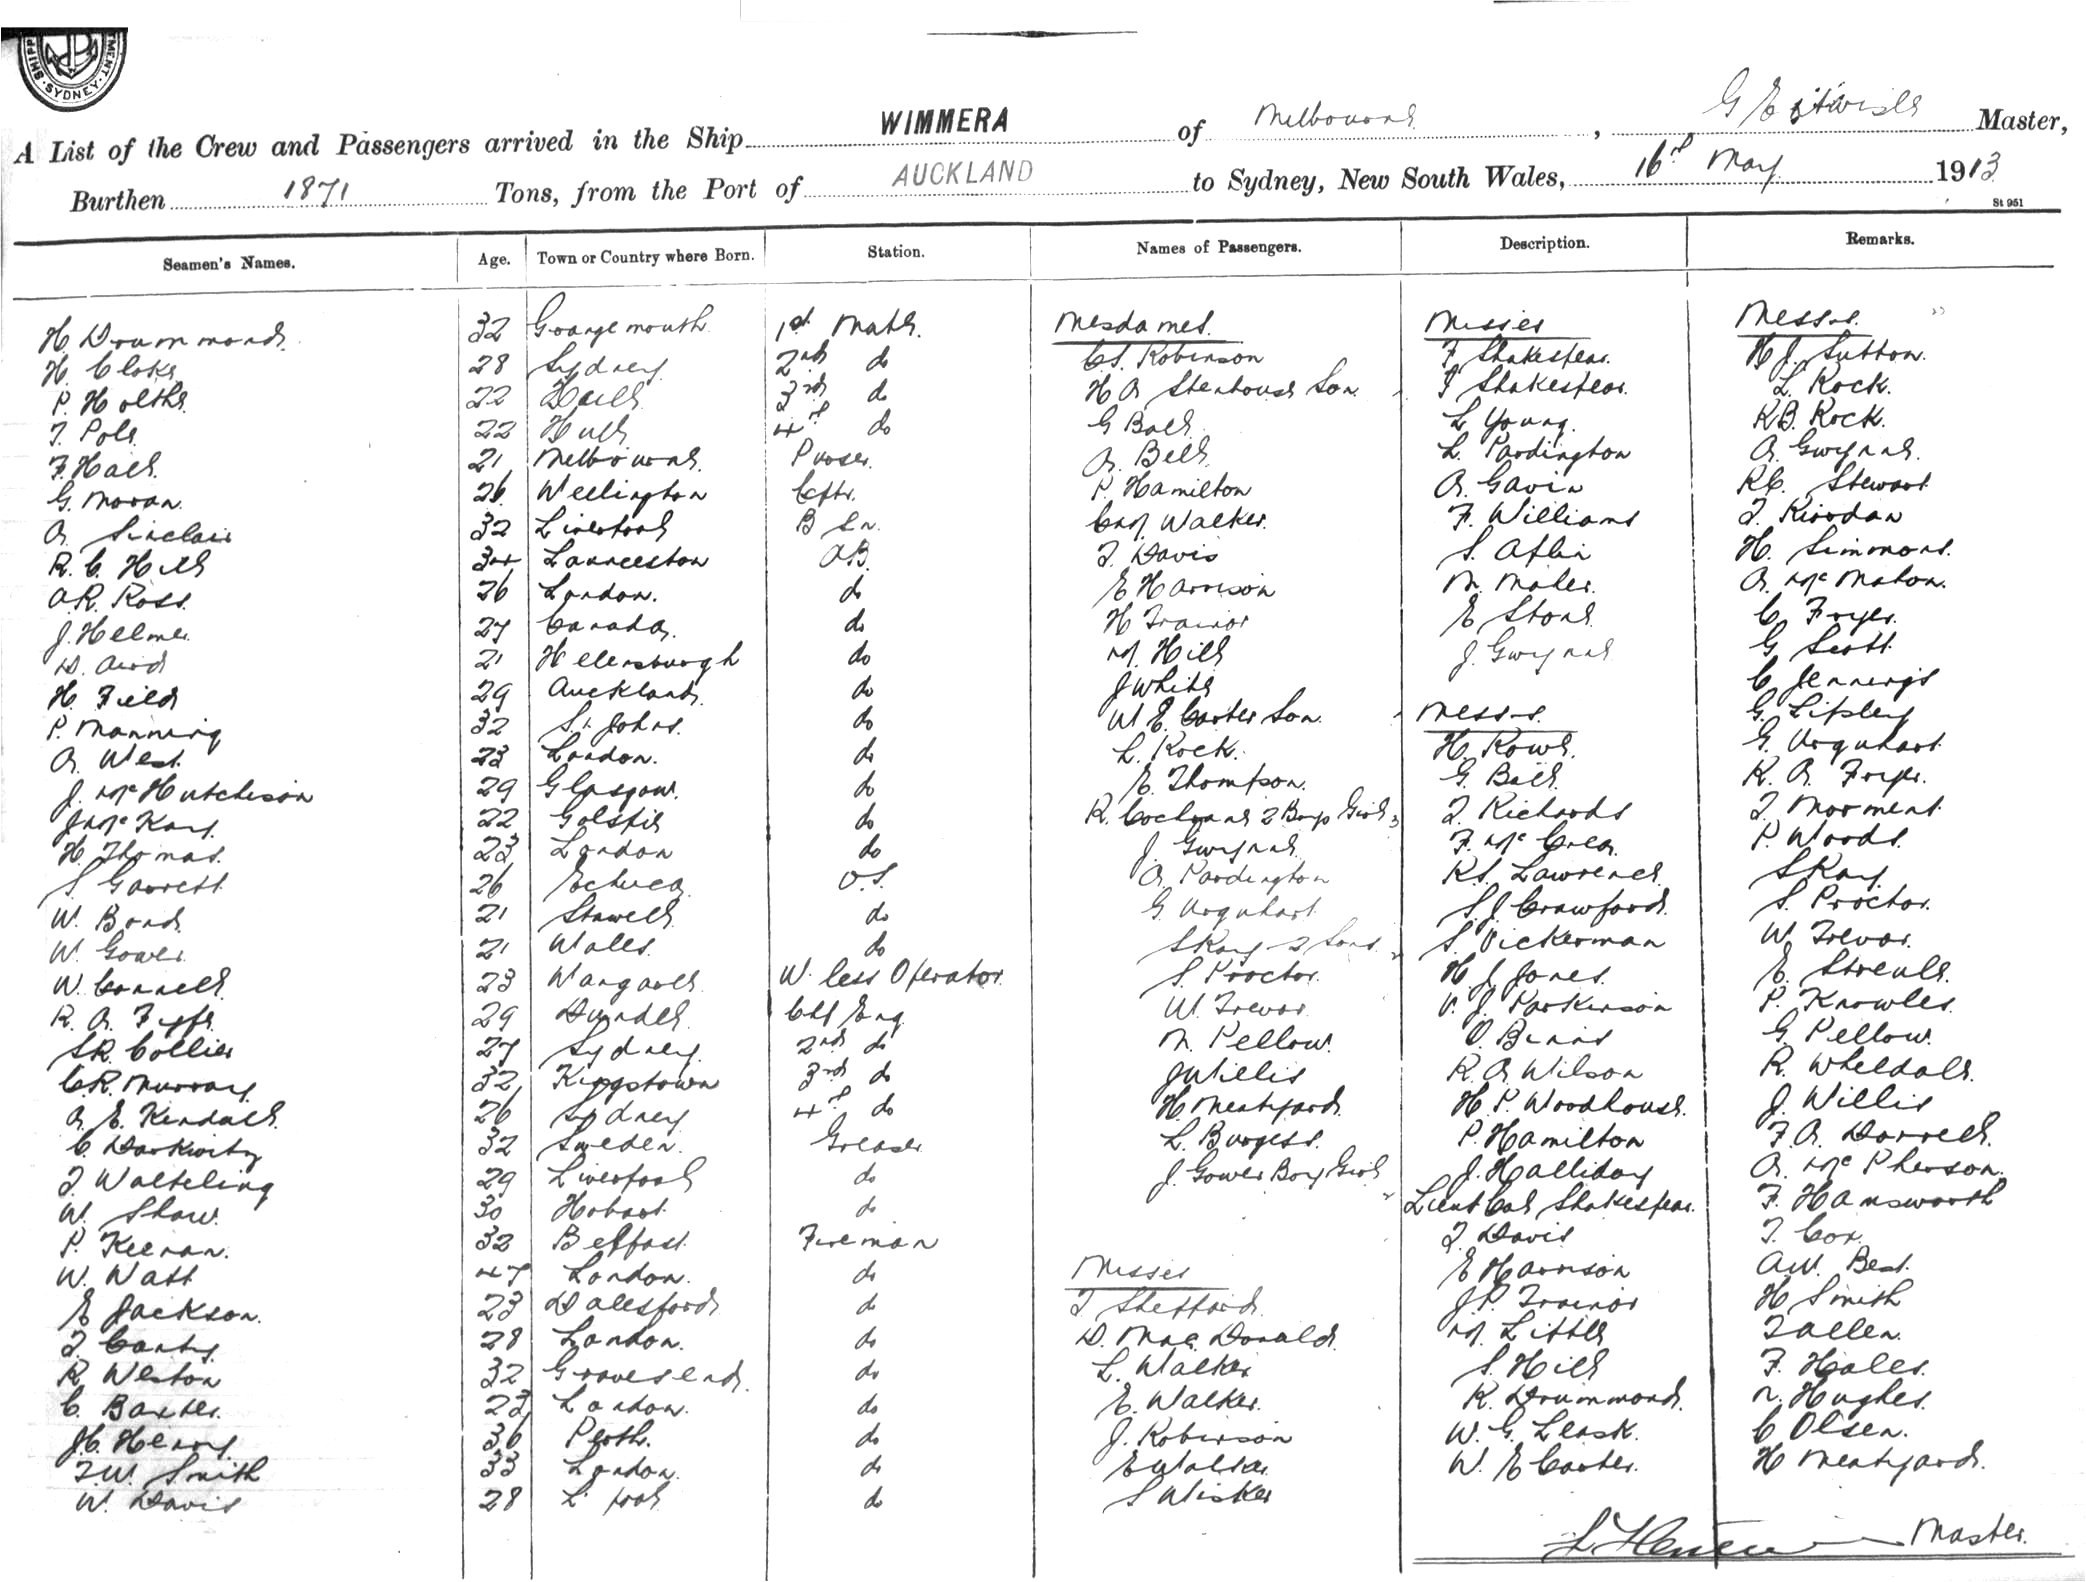 SHIPP MENT. SYDNEY
A List of the Crew and Passengers arrived in the Ship WIMMERA of Melbourne, Master,
Burthen 1871 Tons, from the Port of AUCKLAND to Sydney, New South Wales, 16th May 1913
St 951
Seamen's Names. Age. Town or Country where Born. Station. Names of Passengers. Description. Remarks.
H. Drummond. 32 Grangemouth 1st Mate. Mesdames. Misses Messrs.
H. Cloke 28 Sydney 2nd do C.S. Robinson F Shakespear. H J. Sutton.
P. Holthe. 22 3rd do H A Stenhouse Son I Shakespear. L Rock.
T. Pole. 22 Hull 4th do G Ball. L Young. R.B. Rock.
F. Hall. 21 Melbourne. Purser. A. Bell L. Pardington A. Gwynne.
G. Moran. 26 Wellington Cptr. P. Hamilton A. Gavin R.C. Stewart
A. Sinclair 32 Liverpool B Sn. Walker. F. Williams T. Riordan
R. C. Hill 34 Launceston AB. T. Davis S. H. Simmons.
A.R. Ross. 26 London. do E Harrison M. A. McMahon.
J. Helmer. 27 Canada. do H Trainor E Stone C Fryer.
D. Aird 21 Helensburgh do M. Hill J. Gwynne G. Scott
H. Field 29 Auckland. do J White C Jennings
P. Manning 32 St. Johns. do W. E. Carter Son. Messrs. G. Lipsley
A. West. 23 London. do L. Rock. H. Rowe. G Urquhart
J. McHutchison 29 Glasgow. do E. Thompson. G. Ball R. A. Fryer.
J. McKay. 22 Golspie do R. Cochrane 2 Boys Girl 3 T. Richards T. Morment
H. Thomas. 23 London do J. Gwynne. F. McCrea. P Woods.
S Garrett. 26 Echuca. O.S. A. Pardington R.S. Lawrence. S Kay.
W. Bond. 21 Stawell do G Urquhart S.J. Crawford. S. Proctor.
W. Gower. 21 Wales. do S Kay 2 Sons. S. Vickerman W. Trevor.
W. Connell. 23 W. less Operator. S. Proctor. H J. Jones. E. Streule.
R. A. Fyfe. 29 Dundee. Chf Eng W. Trevor. V. J. Parkinson P. Knowles.
S.R. Collier 27 Sydney. 2nd do M. Pellow. O. Binns G. Pellow.
C.R. Murray 32 Kingstown 3rd do J Willis R. A. Wilson R. Wheldale.
A. E. Kendall. 26 Sydney 4th do H. Meatyard. H. P. Woodhouse. J. Willis
C. 32 Sweden. Greaser L. Burgess. P. Hamilton F. A. Dorrell.
T. Walteling 29 Liverpool do J. Gower Boy Girl J. Halliday A. McPherson.
W. Shaw. 30 Hobart. do Lieut Col Shakespear. F. Hainsworth
P. Keenan. 32 Belfast. Fireman T. Davis T. Cox.
W. Watt 47 London. do Misses E Harrison A.W. Best.
E Jackson. 23 Dalesford do T Sheppard. J.P. Trainor H Smith
T. Canty. 28 London. do D. MacDonald. M. Little T Allen.
R. Weston 32 Gravesend. do L. Walker S. Hill F. Hales.
C. Baxter. 23 London. do E. Walker. R. Drummond. N. Hughes.
J.C. Henry. 36 Perth. do J. Robinson W. G. Leask. C Olsen.
T.W. Smith 33 London. do E Walker W. E Carter. H Meatyard.
W. Davis 28 L. pool do S Wisker
Master.